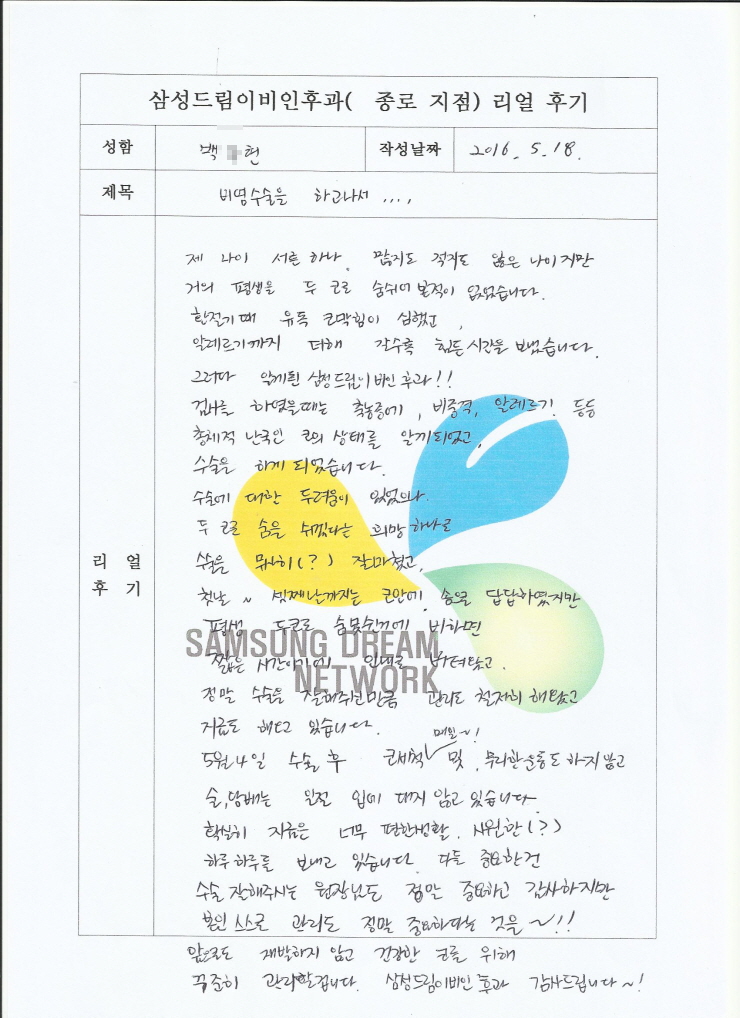 삼성드림이비인후과( 종로 지점) 리얼 후기
성함 백 현 작성날짜 2016. 5. 18.
제목 비염수술을 하고나서 ....
리 얼
후 기
제 나이 서른 하나. 많지도 적지도 않은 나이지만
거의 평생을 두 코로 숨쉬어 본적이 없었습니다.
환절기때 유독 코막힘이 심했고,
알레르기까지 더해 갈수록 힘든 시간을 보냈습니다.
그러다 알게된 삼성드림이비인후과!!
검사를 하였을때는 축농증에, 비중격, 알레르기 등등
총체적 난국인 코의 상태를 알게되었고,
수술을 하게 되었습니다.
수술에 대한 두려움이 있었으나
두 코로 숨을 쉬겠다는 희망 하나로
수술을 무사히(?) 잘마쳤고,
첫날 ~ 셋째날까지는 코안에 솜으로 답답하였지만
평생 두코로 숨못쉰거에 비하면
짧은 시간이기에 인내로 버텨왔고.
정말 수술을 잘해주신만큼 관리도 철저히 해왔고
지금도 해오고 있습니다.
5월 4일 수술 후 코세척 매일~! 및, 무리한운동도 하지않고
술,담배는 일절 입에 대지 않고 있습니다.
확실히 지금은 너무 편한생활. 시원한(?)
하루하루를 보내고 있습니다. 다들 중요한건
수술 잘해주시는 원장님도 정말 중요하고 감사하지만
본인 스스로 관리도 정말 중요하다는 것을 ~!!
앞으로도 재발하지 않고 건강한 코를 위해
꾸준히 관리할겁니다. 삼성드림이비인후과 감사드립니다~!
SAMSUNG DREAM
NETWORK